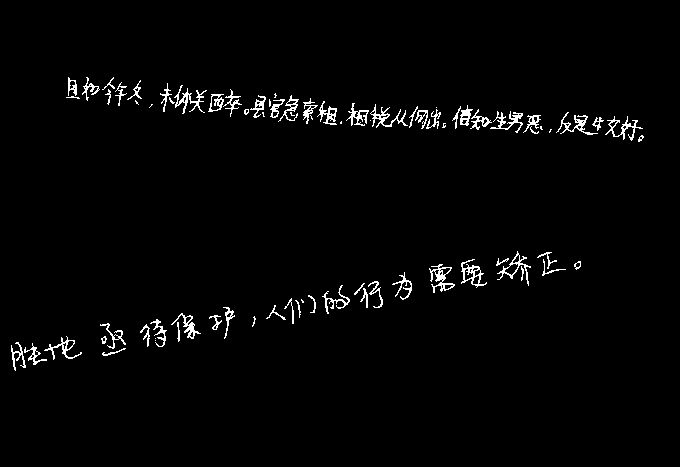 且如今年冬，未休关西卒。县官急索租，租税从何出。信知生男恶，反是生女好。
胜地亟待保护，人们的行为需要矫正。